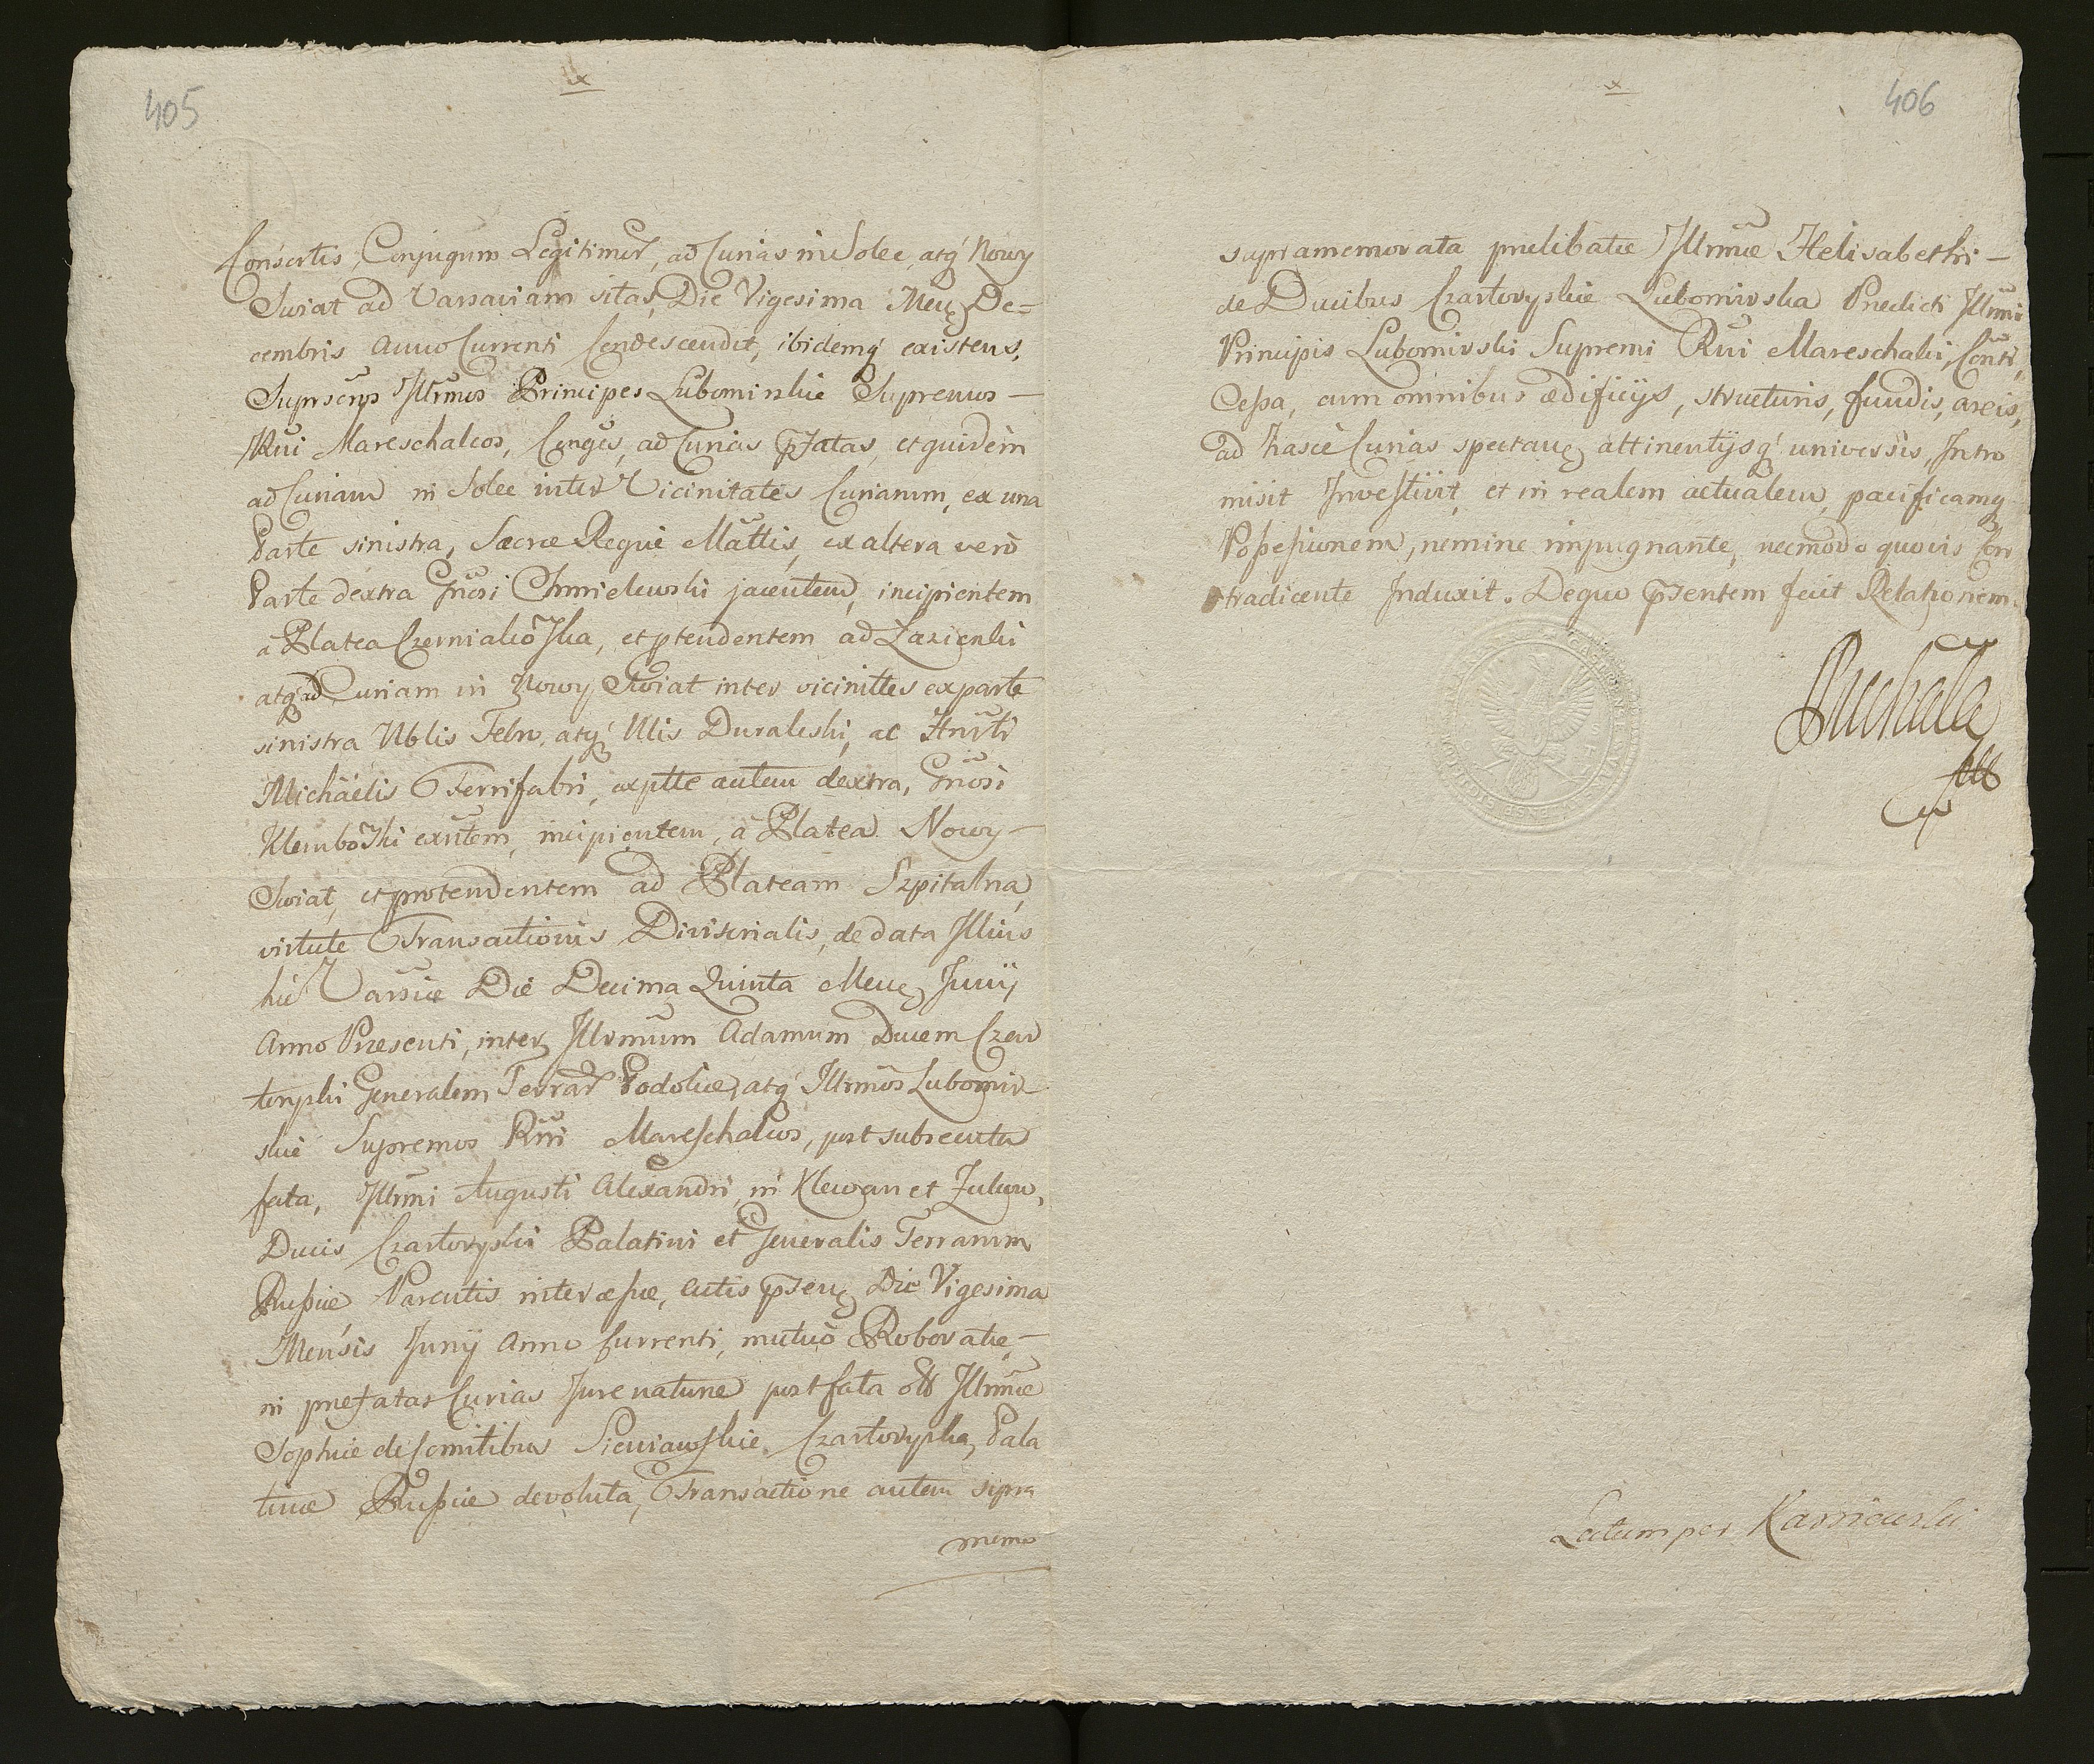 405
Consortis, Conjugum Legitimor, ad Curias in Solec, atq Nowy
Swiat ad Varsaviam sitas, Die Vigesima Mens De=
cembris Anno Currenti Condescendit, ibidemq existens,
Suprscrps Illrmos Principes Lubomirskie Supremos —
Rni Mareschalcos, Conges, ad Curias pfatas, et quidem
ad Curiam in Solec inter Vicinitates Curiarum, ex una
Parte sinistra, Sacræ Regiæ Mattis, ex altera vero
Parte dextra Gnosi Chmielewski jacentem, incipientem
a Platea CzerniakoSka, et ptendentem ad Lazienki
atq ad Curiam in Nowy Swiat inter vicinittes ex parte
sinistra Nblis atq Nlis Duraleski, ac Hnsti
Michaelis Ferrifabri, ex ptte autem dextra, Gnosi
KlemboSki exntem, incipientem, a Platea Nowy —
Swiat, et protendentem ad Plateam Szpitalna,
virtute Transactionis Divisorialis, de data Illius
hic Varsaviæ Die Decima Quinta Mens Junij
Anno Præsenti, inter Illrmum Adamum Ducem Czar
toryski Generalem Terrar Podoliæ, atq Illrmos Lubomir
skie Supremos Rni Mareschalcos, post subsecuta
fata, Illrmi Augusti Alexandri in Klewan et Zukow,
Ducis Czartoryski Palatini et Generalis Terrarum
Russiæ Parentis initæ Actis psen Die Vigesima
Mensis Junij Anno Currenti, mutuo Roboratæ —
in præfatas Curias Jure naturæ post fata olt Illrmæ
Sophiæ de Comitibus Sieniawskie Czartoryska, Pala
tinæ Russiæ devoluta, Transactione autem supra
memo
406
supramemorata prælibatæ Illrmæ Helisabethi —
de Ducibus Czartoryskie Lubomirska Prædicti Illrmi
Principis Lubomirski Supremi Rni Mareschalci, Conti,
Cessa, cum omnibus ædificijs, structuris, fundis, areis,
ad hasce Curias spectan, attinentijsq universis, Intro
misit Investivit, et in realem actualem, pacificamq
Possessionem, nemine impugnante, necmodo quovis Con
tradicente Induxit. De quo psentem fecit Relationem.
Lectum per Karniewski